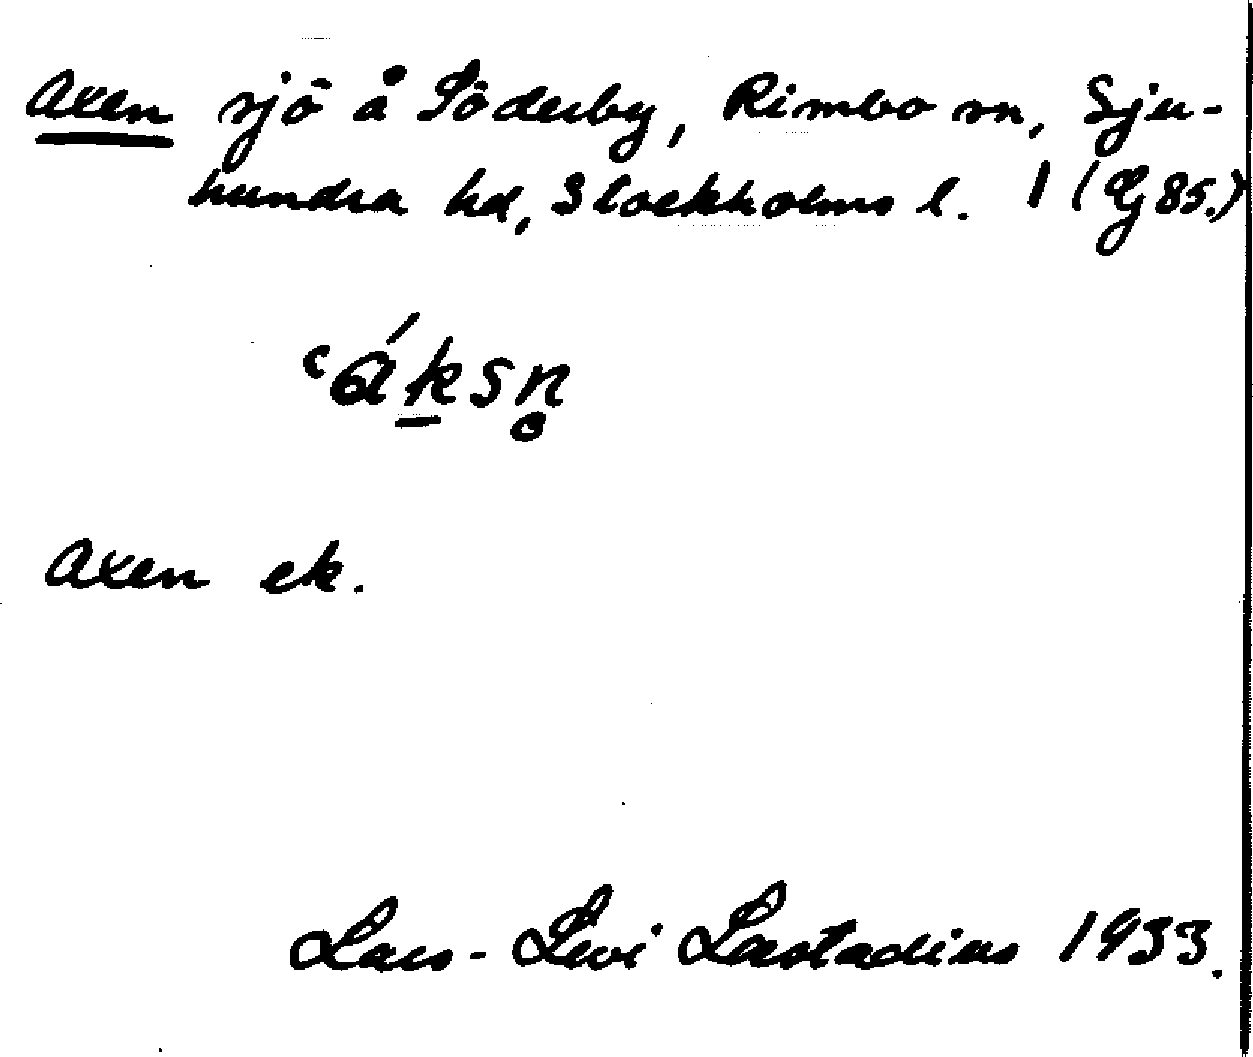 Axen sjö å Söderby, Rimbo sn, Sju-
hundra hd, Stockholms l. 1 (Lg 85.)
ʿáksn̥
Axen ek.
Lars-Levi Læstadius 1933.